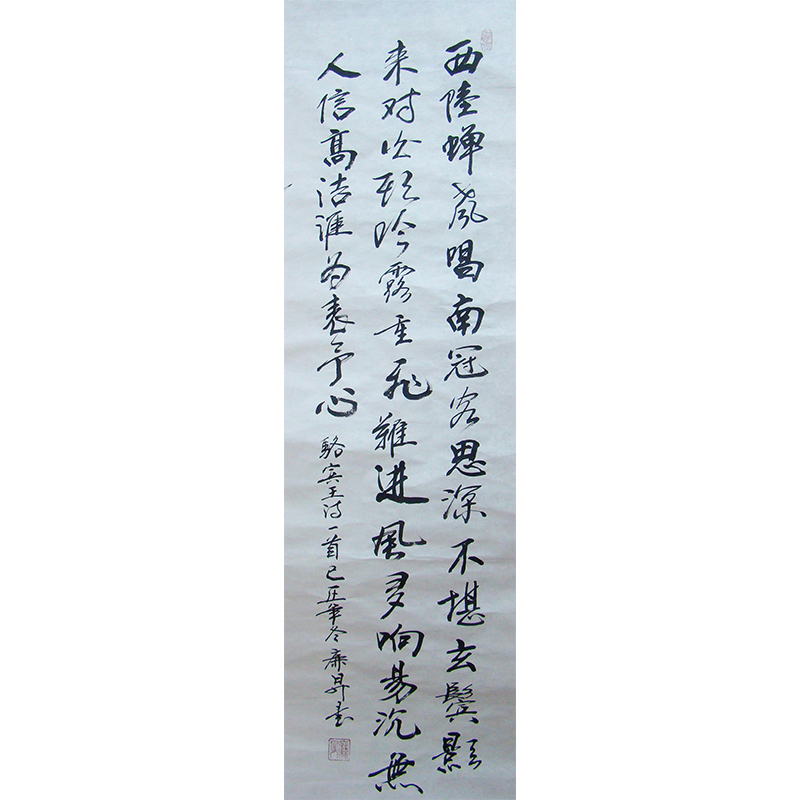 西陸蝉声唱南冠客思深不堪玄鬓影
来对白头吟露重飞難進風多响易沉無
人信髙洁谁为表予心 骆宾王诗一首 己丑年冬 昇书